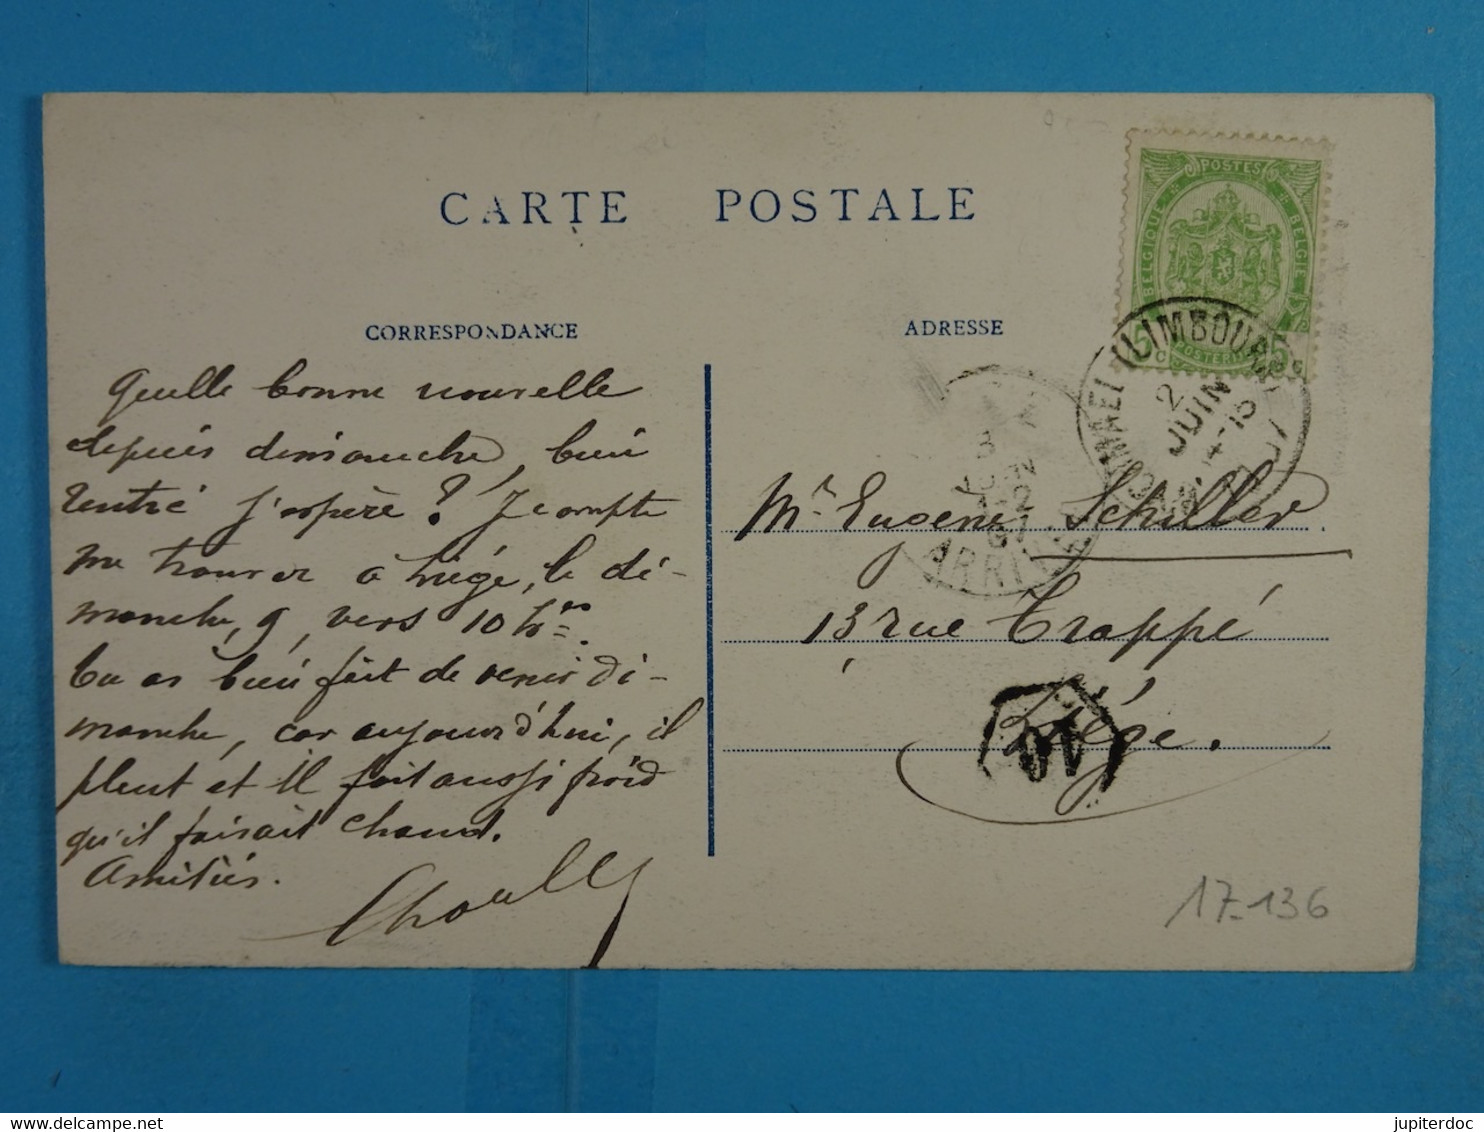 CARTE POSTALE
CORRESPONDANCE
ADRESSE
POSTES
BELGIQUE
BELGIË
5 C POSTERIJEN 5 C
(LIMBOURG)
2
JUIN
14-15
07
3
JUIN
1-2
07
ARRIVÉE
Quelle bonne nouvelle
depuis dimanche, bien
rentré j'espère? Je compte
me trouver à Liége, le di-
manche, 9, vers 10 hres.
Tu as bien fait de venir di-
manche, car aujourd'hui, il
pleut et il fait aussi froid
qu'il faisait chaud.
Amitiés.
Mr. Eugène Schiller
13 rue Trappé
Liége.
17-136
jupiterdoc